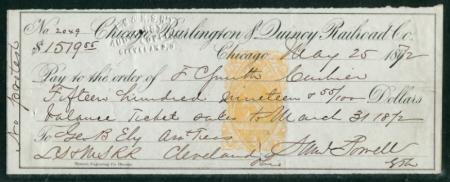 No 2049 Chicago Burlington & Quincy Railroad Co.
$1519.55
Chicago, May 25 1872
Pay to the order of F C Smith Cashier
Fifteen hundred nineteen & 55/100 Dollars
balance Ticket sales to March 31 1872
To Geo B Ely Ass Treas
L S & M S RR Cleveland O
Powell
No protest